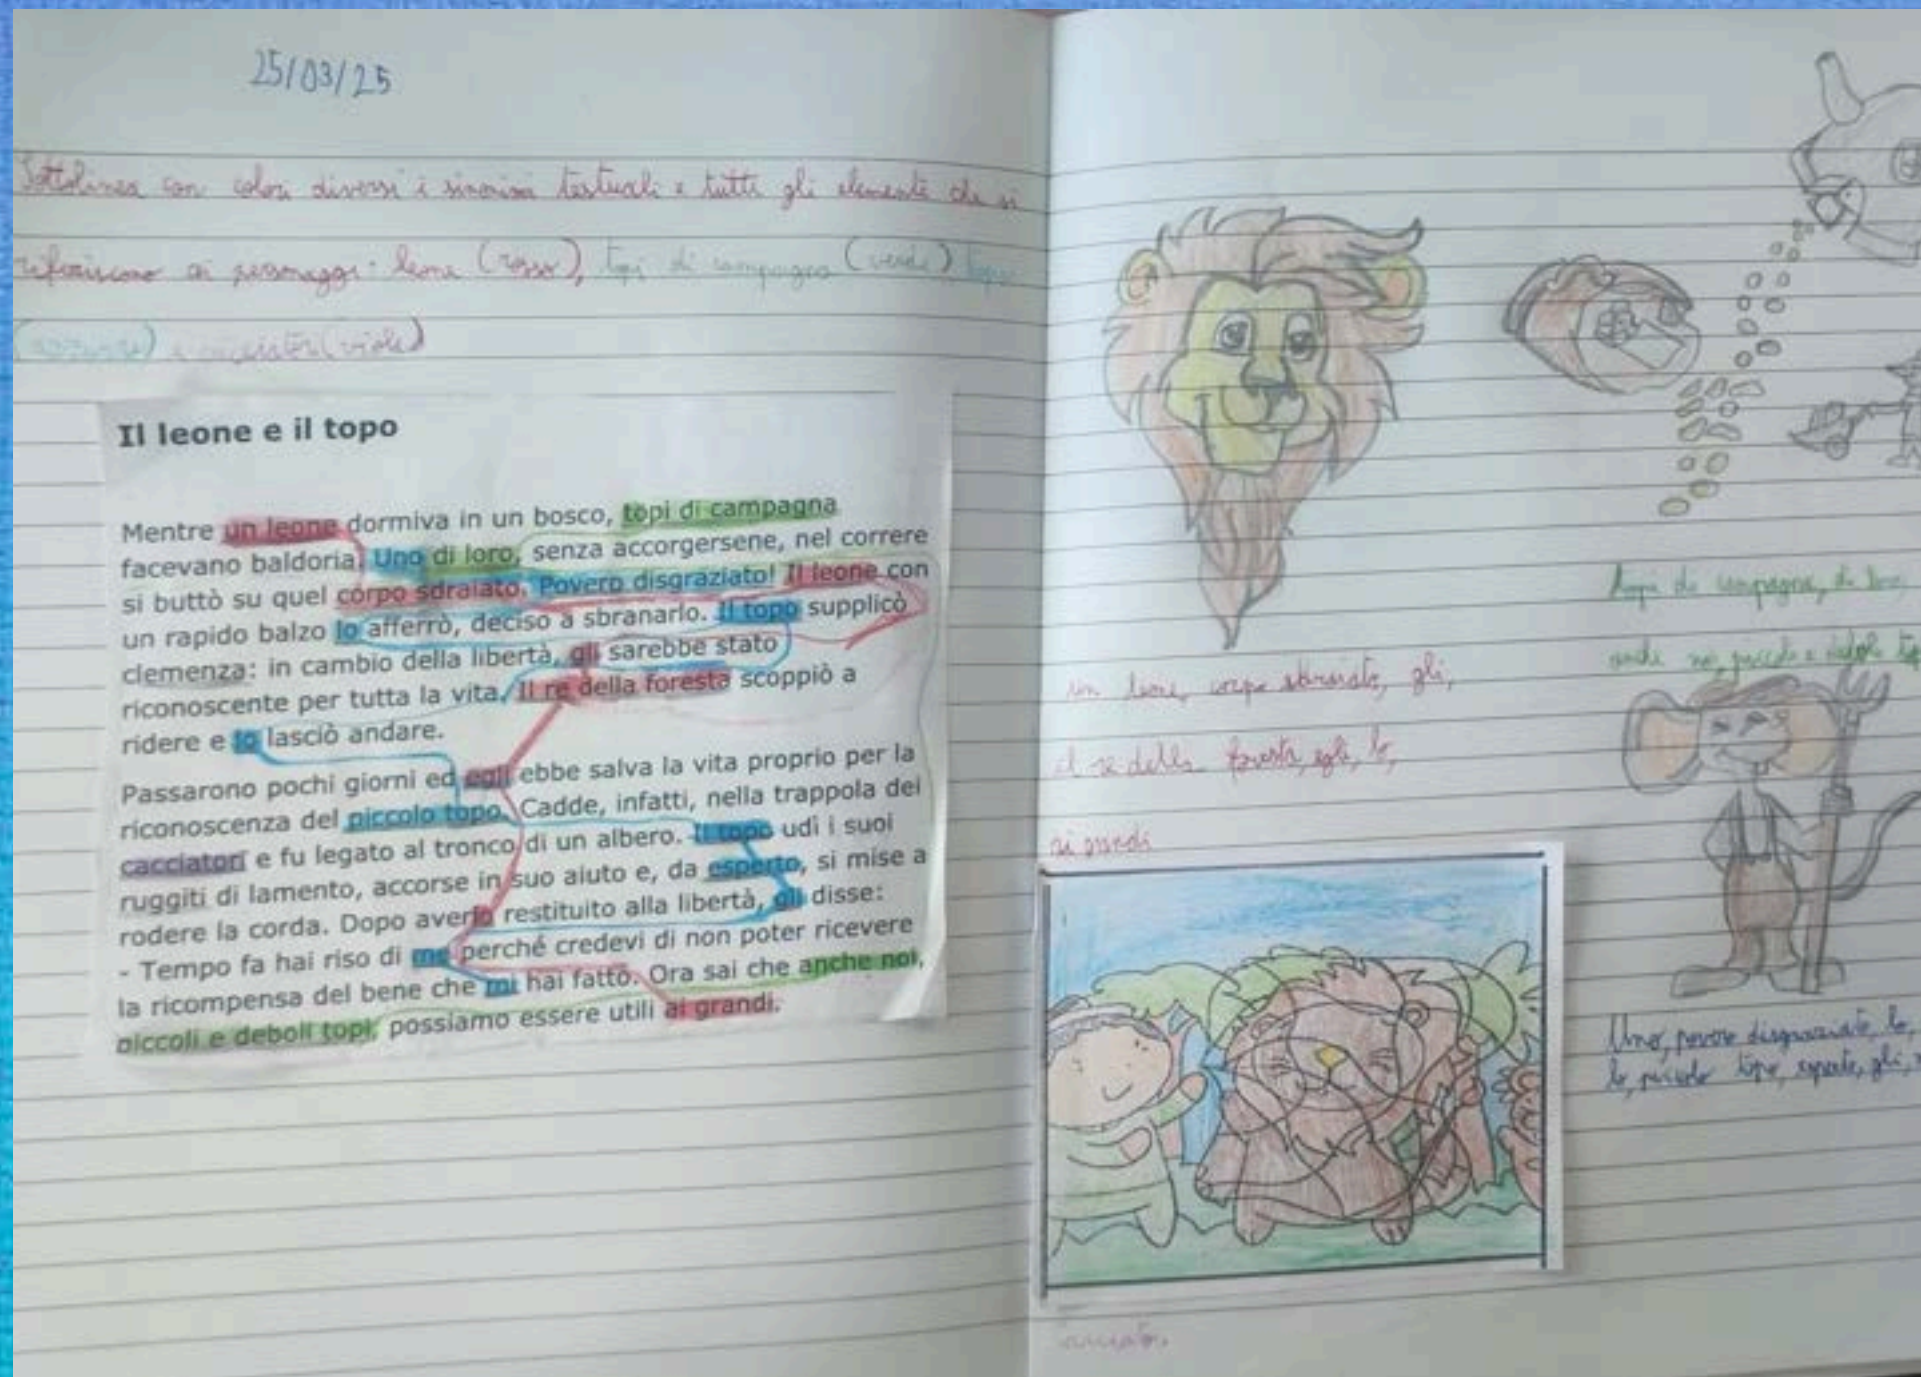 25/03/25
Sottolinea con colori diversi i sinonimi testuali e tutti gli elementi che si
riferiscono ai personaggi: leone (rosso), topi di campagna (verde) topo
(azzurro) e cacciatori (viola)
Il leone e il topo
Mentre un leone dormiva in un bosco, topi di campagna
facevano baldoria. Uno di loro, senza accorgersene, nel correre
si buttò su quel corpo sdraiato. Povero disgraziato! Il leone con
un rapido balzo lo afferrò, deciso a sbranarlo. Il topo supplicò
clemenza: in cambio della libertà, gli sarebbe stato
riconoscente per tutta la vita. Il re della foresta scoppiò a
ridere e lo lasciò andare.
Passarono pochi giorni ed egli ebbe salva la vita proprio per la
riconoscenza del piccolo topo. Cadde, infatti, nella trappola dei
cacciatori e fu legato al tronco di un albero. Il topo udì i suoi
ruggiti di lamento, accorse in suo aiuto e, da esperto, si mise a
rodere la corda. Dopo averlo restituito alla libertà, gli disse:
- Tempo fa hai riso di me perché credevi di non poter ricevere
la ricompensa del bene che mi hai fatto. Ora sai che anche noi,
piccoli e deboli topi, possiamo essere utili ai grandi.
un leone, corpo sdraiato, gli,
il re della foresta, egli, lo,
ai grandi
topi di campagna, di loro,
anche noi, piccoli e deboli
Uno, povero disgraziato, lo,
lo, piccolo topo, esperto, gli,